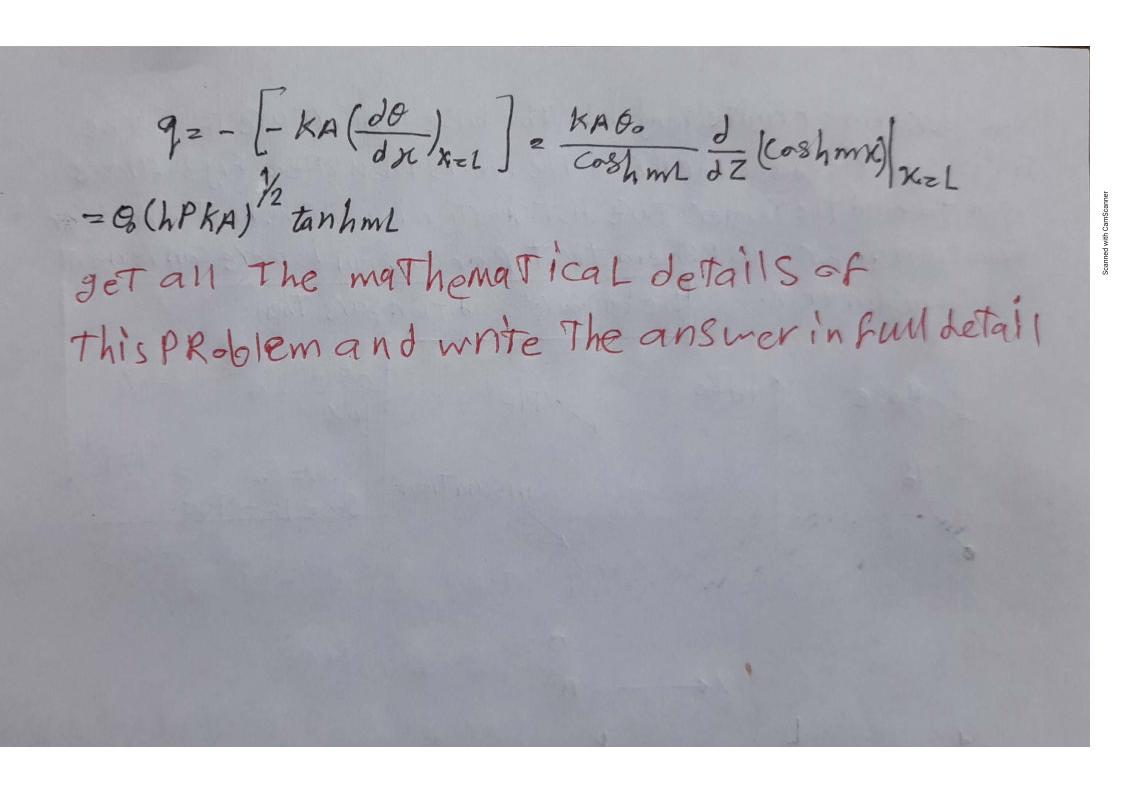 q = - [- KA (dθ/dx)x=L] = KAθ₀/coshmL d/dZ (coshmx)|x=L
= θ₀(hPKA)^1/2 tanhmL
get all The maThemaTical details of
this PRoblem and write The answer in full detail
Scanned with CamScanner